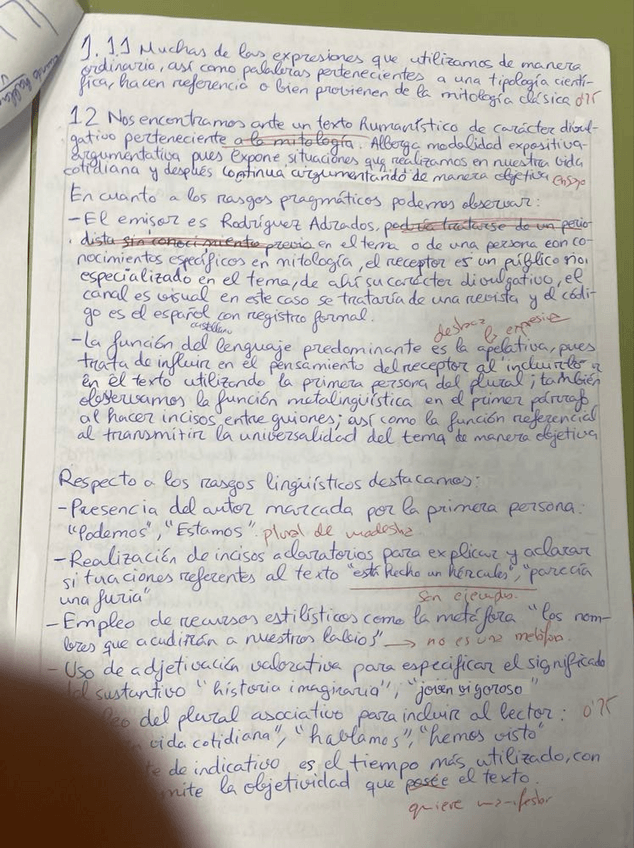 1. 1.1 Muchas de las expresiones que utilizamos de manera
ordinaria, así como palabras pertenecientes a una tipología cientí-
fica, hacen referencia o bien provienen de la mitología clásica 0'75
1.2 Nos encontramos ante un texto humanístico de carácter divul-
gativo perteneciente a la mitología. Alberga modalidad expositiva-
argumentativa pues expone situaciones que realizamos en nuestra vida
cotidiana y después continua argumentando de manera objetiva Ensayo
En cuanto a los rasgos pragmáticos podemos observar:
-El emisor es Rodríguez Adrados, podría tratarse de un perio-
dista sin conocimiento previo en el tema o de una persona con co-
nocimientos específicos en mitología, el receptor es un público no
especializado en el tema, de ahí su carácter divulgativo, el
canal es visual en este caso se trataría de una revista y el códi-
go es el español con registro formal.
castellano
destaca la expresiva
-La función del lenguaje predominante es la apelativa, pues
trata de influir en el pensamiento del receptor al incluirlo
en el texto utilizando la primera persona del plural; también
observamos la función metalingüística en el primer párrafo
al hacer incisos entre guiones; así como la función referencial
al transmitir la universalidad del tema de manera objetiva
Respecto a los rasgos lingüísticos destacamos:
-Presencia del autor marcada por la primera persona:
"Podemos", "Estamos" plural de modestia
-Realización de incisos aclaratorios para explicar y aclarar
situaciones referentes al texto "está hecho un hércules", "parecía
una furia"
son ejemplos.
-Empleo de recursos estilísticos como la metáfora "los nom-
bres que acudirán a nuestros labios" → no es una metáfora.
-Uso de adjetivación valorativa para especificar el significado
del sustantivo "historia imaginaria", "joven vigoroso"
del plural asociativo para incluir al lector: 0'75
vida cotidiana", "hablamos", "hemos visto"
de indicativo es el tiempo más utilizado, con
la objetividad que posee el texto.
quiere manifestar